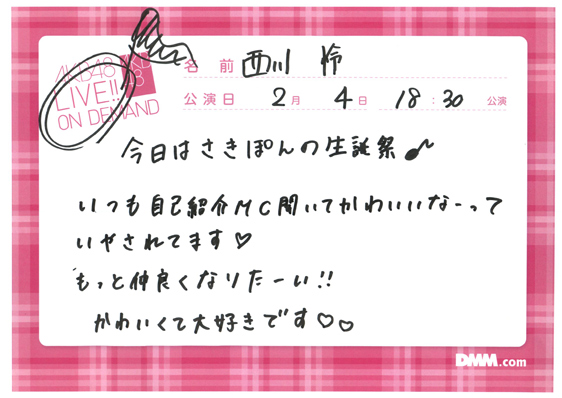 AKB48
LIVE!!
ON DEMAND
AKB
48
名前 西川 怜
公演日 2月 4日 18:30 公演
今日はさきぽんの生誕祭♪
いつも自己紹介MC聞いてかわいいなーって
いやされてます♡
もっと仲良くなりたーい!!
かわいくて大好きです♡♡
DMM.com